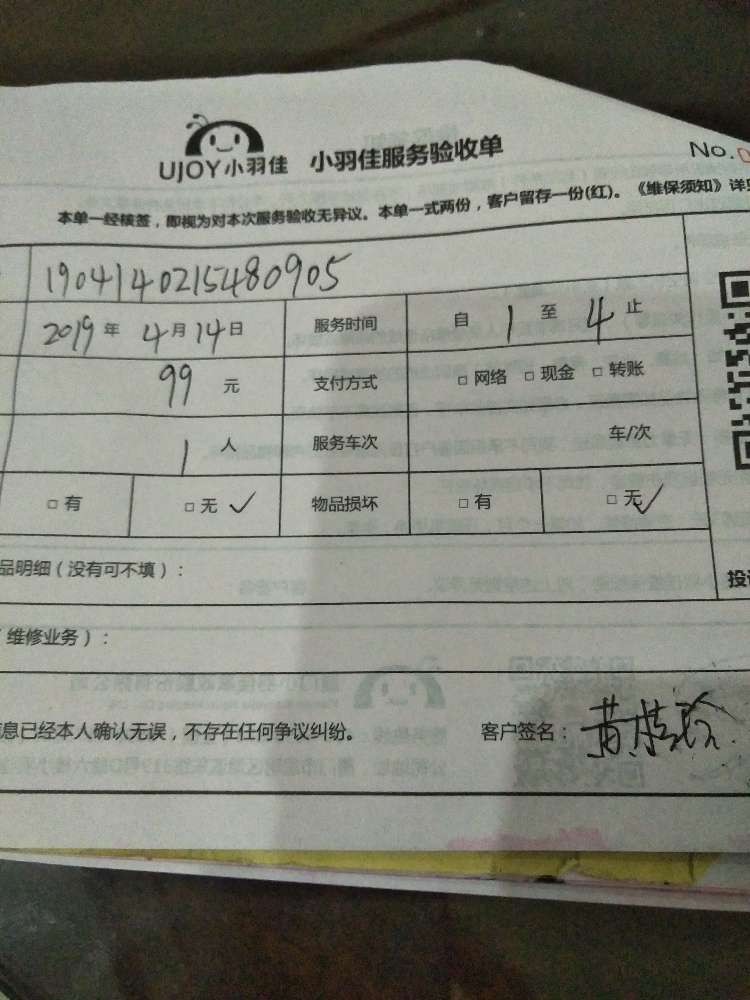 UJOY小羽佳 小羽佳服务验收单
No.0
本单一经核签，即视为对本次服务验收无异议。本单一式两份，客户留存一份(红)。《维保须知》详见
1904140215480905
2019年 4月14日 服务时间 自 1 至 4 止
99 元 支付方式 □网络 □现金 □转账
1 人 服务车次 车/次
□有 □无 ✓ 物品损坏 □有 □无 ✓
品明细（没有可不填）：
投诉
（维修业务）：
息已经本人确认无误，不存在任何争议纠纷。 客户签名：黄桂玲